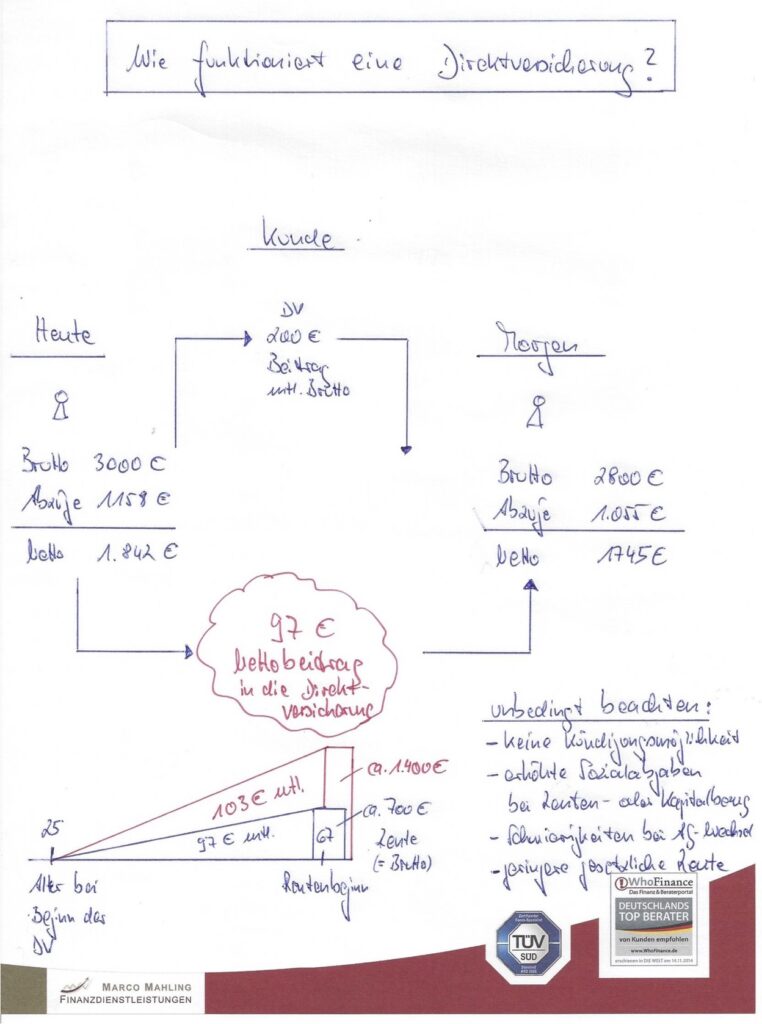 Wie funktioniert eine Direktversicherung?
Kunde
Heute
DV
200 €
Beitrag
mtl. Brutto
Morgen
Brutto 3000 €
Abzüge 1158 €
Netto 1.842 €
Brutto 2800 €
Abzüge 1.055 €
Netto 1745 €
97 €
Nettobeitrag
in die Direkt-
versicherung
unbedingt beachten:
- keine Kündigungsmöglichkeit
- erhöhte Sozialabgaben
bei Renten- oder Kapitalbezug
- Schwierigkeiten bei AG-Wechsel
- geringere gesetzliche Rente
103 € mtl.
97 € mtl.
ca. 1.400 €
ca. 700 €
Rente
(= Brutto)
25
67
Alter bei
Beginn der
DV
Rentenbeginn
MARCO MAHLING
FINANZDIENSTLEISTUNGEN
TÜV
SÜD
WhoFinance
Das Finanz & Beraterportal
DEUTSCHLANDS
TOP BERATER
von Kunden empfohlen
www.WhoFinance.de
erschienen in DIE WELT am 14.11.2014